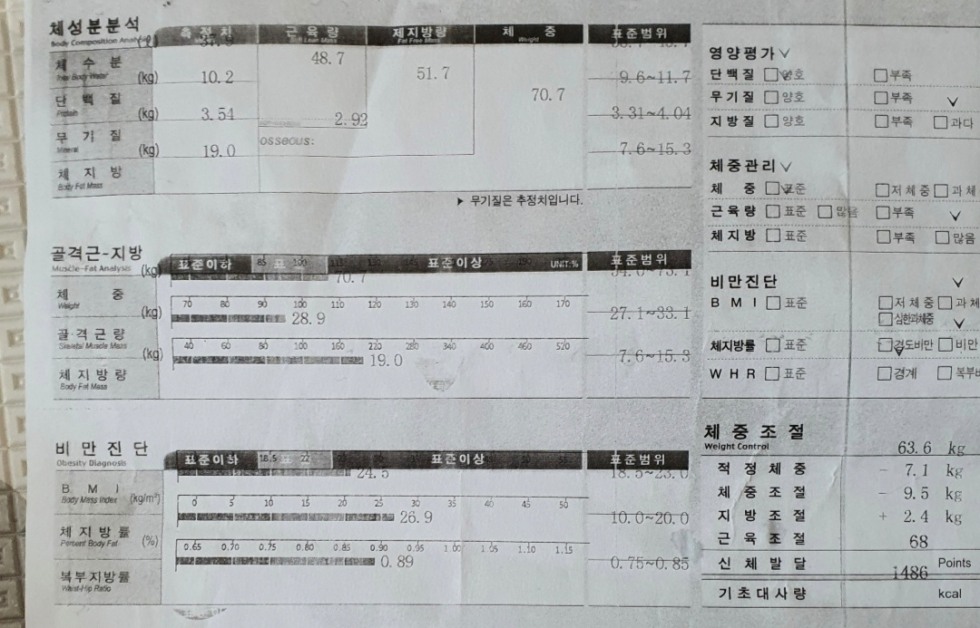 체성분분석 측정치 근육량 제지방량 체중 표준범위
Body Composition Soft Lean Mass Fat Free Mass Weight
체수분 (ℓ) 48.7
Total Body Water
단백질 (kg) 10.2 51.7 9.6~11.7
Protein
무기질 (kg) 3.54 2.92 70.7 3.31~4.04
Mineral osseous:
체지방 (kg) 19.0 7.6~15.3
Body Fat Mass
▶ 무기질은 추정치입니다.
골격근-지방 표준이하 표준 표준이상 UNIT:% 표준범위
Muscle-Fat Analysis
체중 (kg) 85 100 70.7
Weight
70 80 90 100 110 120 130 140 150 160 170
골격근량 (kg) 28.9 27.1~33.1
Skeletal Muscle Mass
40 60 80 100 160 220 280 340 400 460 520
체지방량 (kg) 19.0 7.6~15.3
Body Fat Mass
비만진단 표준이하 18.5 22 표준이상 표준범위
Obesity Diagnosis
BMI (kg/m²) 24.5 18.5~23.0
Body Mass Index
0 5 10 15 20 25 30 35 40 45 50
체지방률 (%) 26.9 10.0~20.0
Percent Body Fat
0.65 0.70 0.75 0.80 0.85 0.90 0.95 1.00 1.05 1.10 1.15
복부지방률 0.89 0.75~0.85
Waist-Hip Ratio
영양평가
단백질 □양호 □부족
무기질 □양호 □부족
지방질 □양호 □부족 □과다
체중관리
체중 □표준 □저체중 □과체
근육량 □표준 □많음 □부족
체지방 □표준 □부족 □많음
비만진단
BMI □표준 □저체중 □과체
□심한과체중
체지방률 □표준 □경도비만 □비만
WHR □표준 □경계 □복부비
체중조절
Weight Control 63.6 kg
적정체중 - 7.1 kg
체중조절 - 9.5 kg
지방조절 + 2.4 kg
근육조절 68
신체발달 Points
1486
기초대사량 kcal